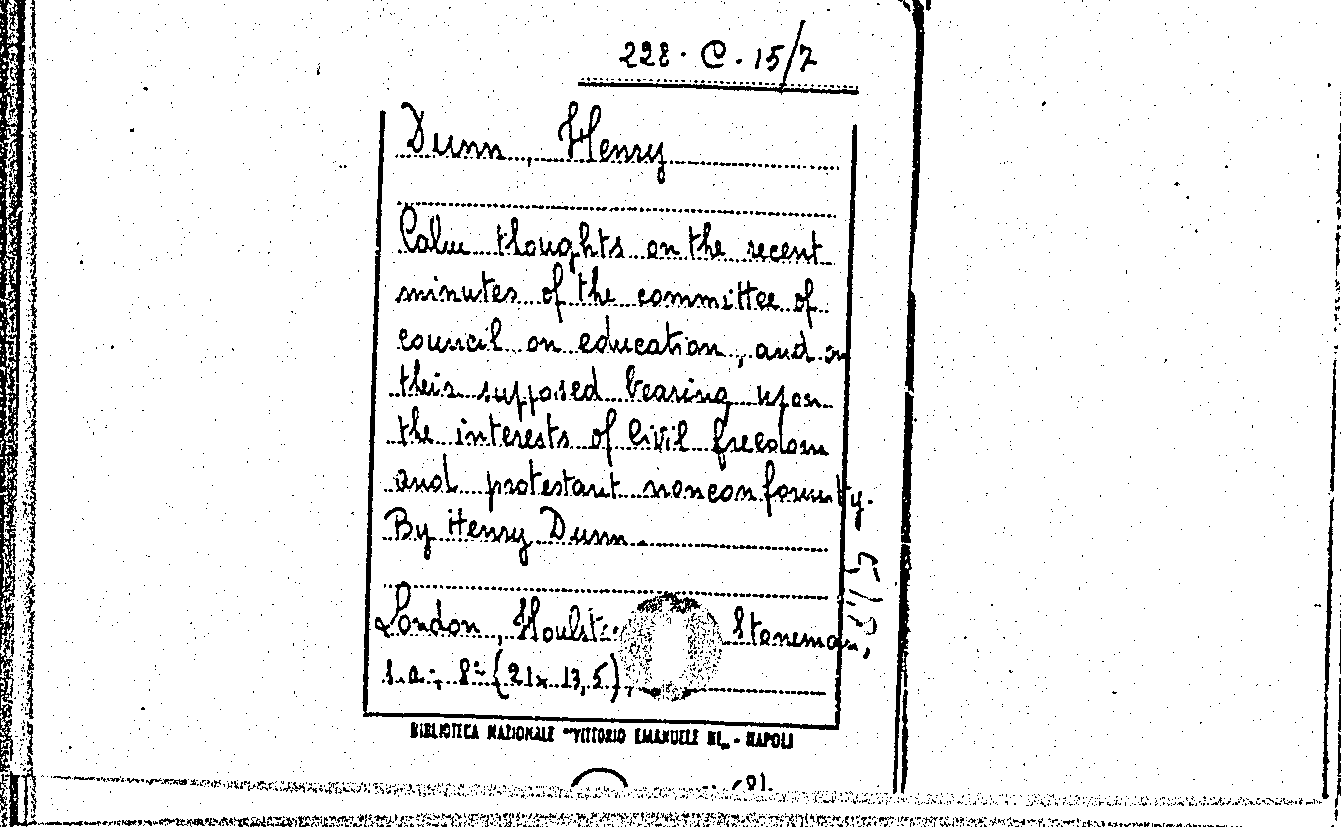 228. C. 15/7
Dunn, Henry
Calm thoughts on the recent
minutes of the committee of
council on education, and on
their supposed bearing upon
the interests of civil freedom
and protestant nonconformity.
By Henry Dunn.
London, Houlst Stoneman,
s.a., 8° (21x13,5).
BIBLIOTECA NAZIONALE "VITTORIO EMANUELE III„ - NAPOLI